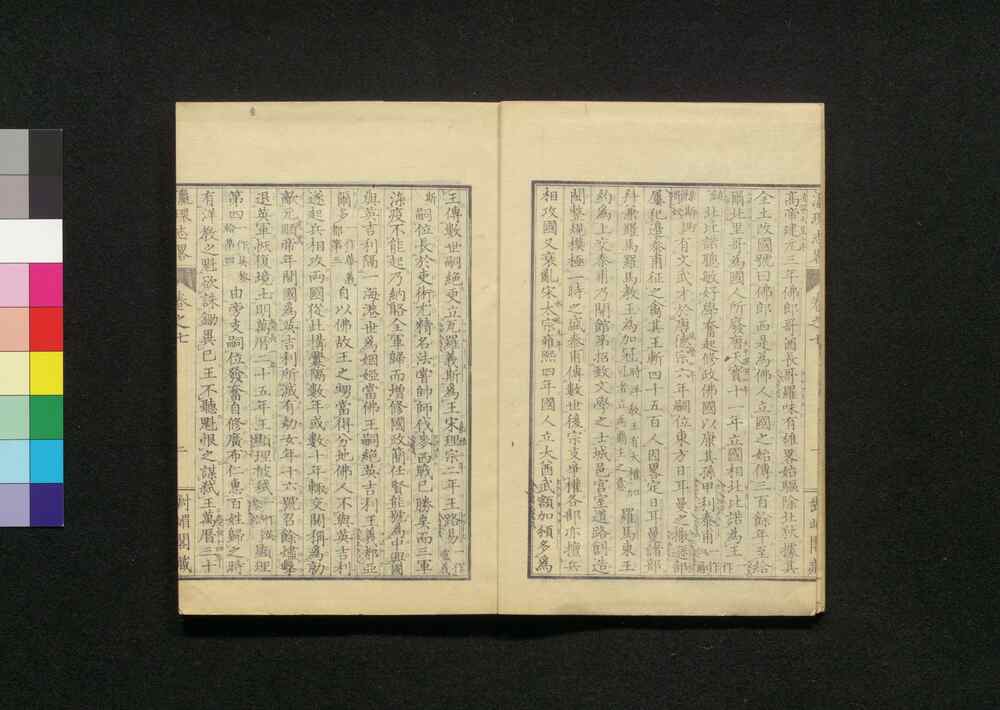 高帝建元三年佛郎哥酋長哥羅味有雄畧始驅除北狄據其
全土改國號曰佛郎西是為佛人立國之始傳三百餘年至給
爾北里哥為國人所廢唐天寶十一年立國相北比諾為王
北比諾聰敏好學奮起修政佛國以康其孫甲利泰甫一作
有文武才於唐德宗六年嗣位東方日耳曼之撒遜部
屢犯邊泰甫征之禽其王斬四十五百人因畧定日耳曼諸部
幷肅羅馬羅馬教王為加冠時洋教王有大權加冠者立為霸王之意羅馬東王
約為上交泰甫乃開館第招致文學之士城邑宮室道路創造
閎整規模極一時之盛泰甫傳數世後宗支爭權各部亦擅兵
相攻國又衰亂宋太宗雍熙四年國人立大酋武額加頻多為
王傳數世嗣絕更立瓦羅義斯為王宋理宗二年王路易一作雷義
斯嗣位長於吏術尤精名法嘗帥師伐麥西戰已勝矣而三軍
染疫不能起乃納賂全軍歸而增修國政簡任賢能號為中興國
與英吉利隔一海港世為姻婭當佛王嗣絕英吉利王義都亞
爾多一作華義都第三自以佛故王之甥當得分地佛人不與英吉利
遂起兵相攻兩國從此搆釁隔數年或數十年輒交關稱為勍
敵元順帝年間國為英吉利所滅有幼女年十六號召餘燼擊
退英軍恢復境土明萬曆二十五年王顯理被弒顯理
第四由旁支嗣位發奮自修廣布仁惠百姓歸之時
有洋教之魁欲誅鋤異己王不聽魁恨之謀弒王萬曆三十
瀛環志畧
卷之七
二
對嵋閣藏